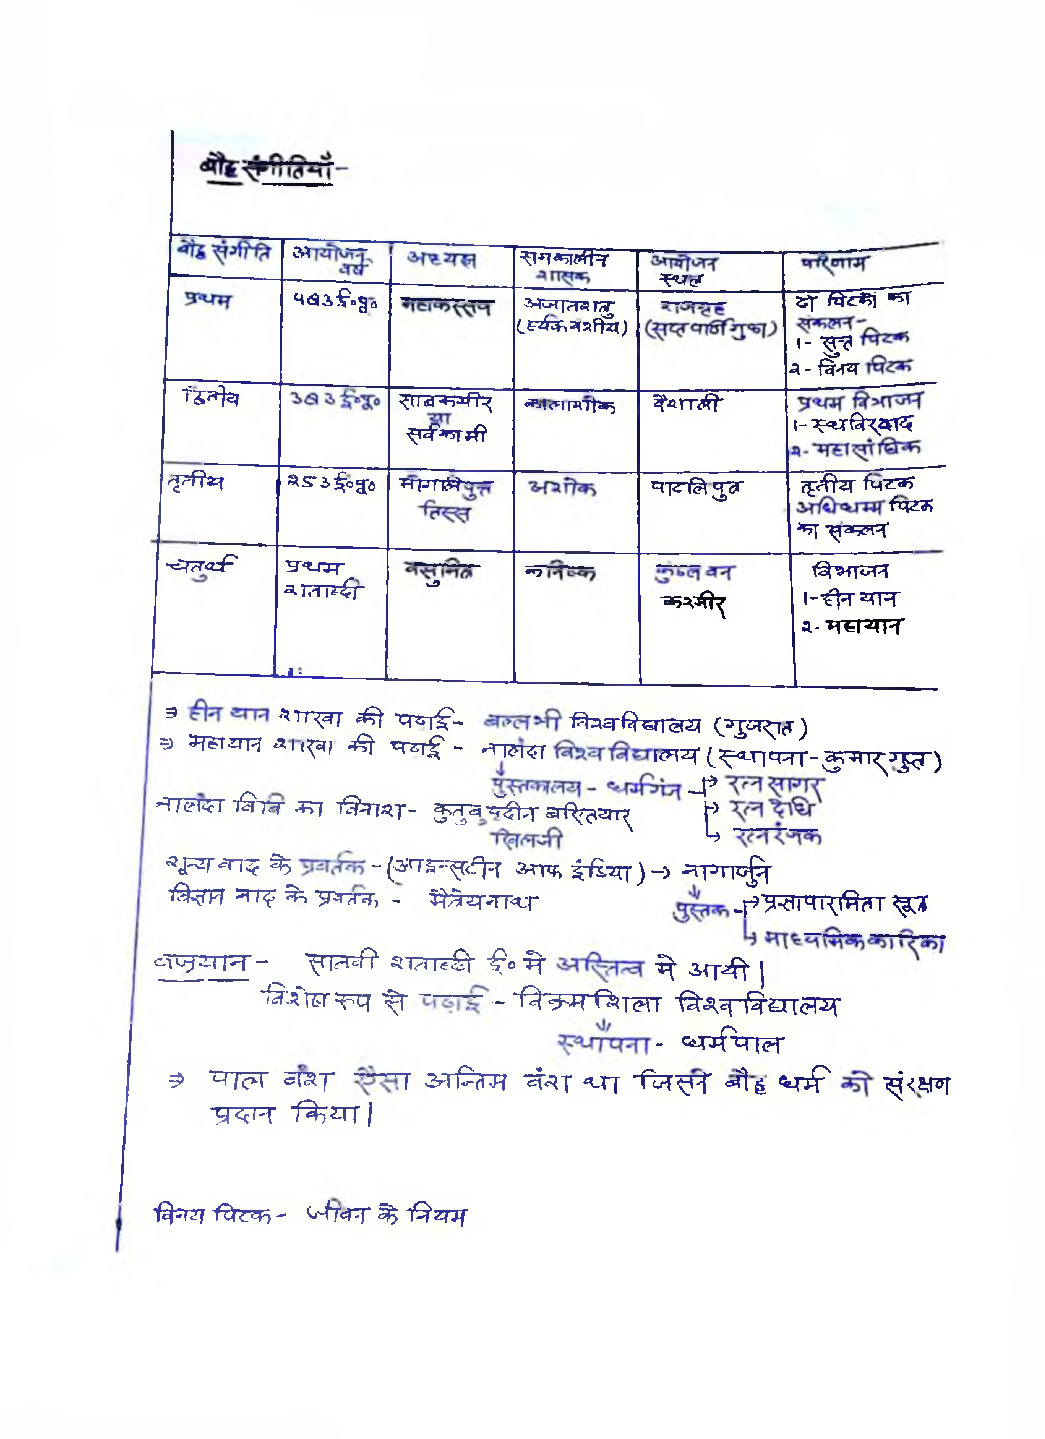 बौद्ध संगीतियाँ-
बौद्ध संगीति | आयोजन वर्ष | अध्यक्ष | समकालीन शासक | आयोजन स्थल | परिणाम
प्रथम | 483 ई०पू० | महाकस्सप | अजातशत्रु (हर्यक वंशीय) | राजगृह (सप्तपर्णि गुफा) | दो पिटकों का संकलन- १- सुत्त पिटक २- विनय पिटक
द्वितीय | 383 ई०पू० | साबकमीर या सर्वकामी | कालाशोक | वैशाली | प्रथम विभाजन १- स्थविरवाद २- महासांघिक
तृतीय | २५३ ई०पू० | मोगलिपुत्त तिस्स | अशोक | पाटलिपुत्र | तृतीय पिटक अभिधम्म पिटक का संकलन
चतुर्थ | प्रथम शताब्दी | वसुमित्र | कनिष्क | कुण्डलवन कश्मीर | विभाजन १- हीनयान २- महायान
⇒ हीन यान शाखा की पढाई- बल्लभी विश्वविद्यालय (गुजरात)
⇒ महायान शाखा की पढाई - नालंदा विश्वविद्यालय (स्थापना-कुमार गुप्त)
↓ पुस्तकालय - धर्मगंज → रत्न सागर
नालंदा वि०वि का विनाश- कुतुबुद्दीन बख्तियार → रत्न दधि
खिलजी → रत्नरंजक
शून्य वाद के प्रवर्तक -(आइन्स्टीन आफ इंडिया) → नागार्जुन
विज्ञान वाद के प्रवर्तक - मैत्रेयनाथ पुस्तक → प्रज्ञापारमिता सूत्र
→ माध्यमिक कारिका
वज्रयान - सातवी शताब्दी ई० मे अस्तित्व मे आयी|
विशेष रूप से पढ़ाई - विक्रमशिला विश्वविद्यालय
स्थापना - धर्मपाल
⇒ पाल वंश ऐसा अन्तिम वंश था जिसने बौद्ध धर्म को संरक्षण
प्रदान किया|
विनय पिटक - जीवन के नियम